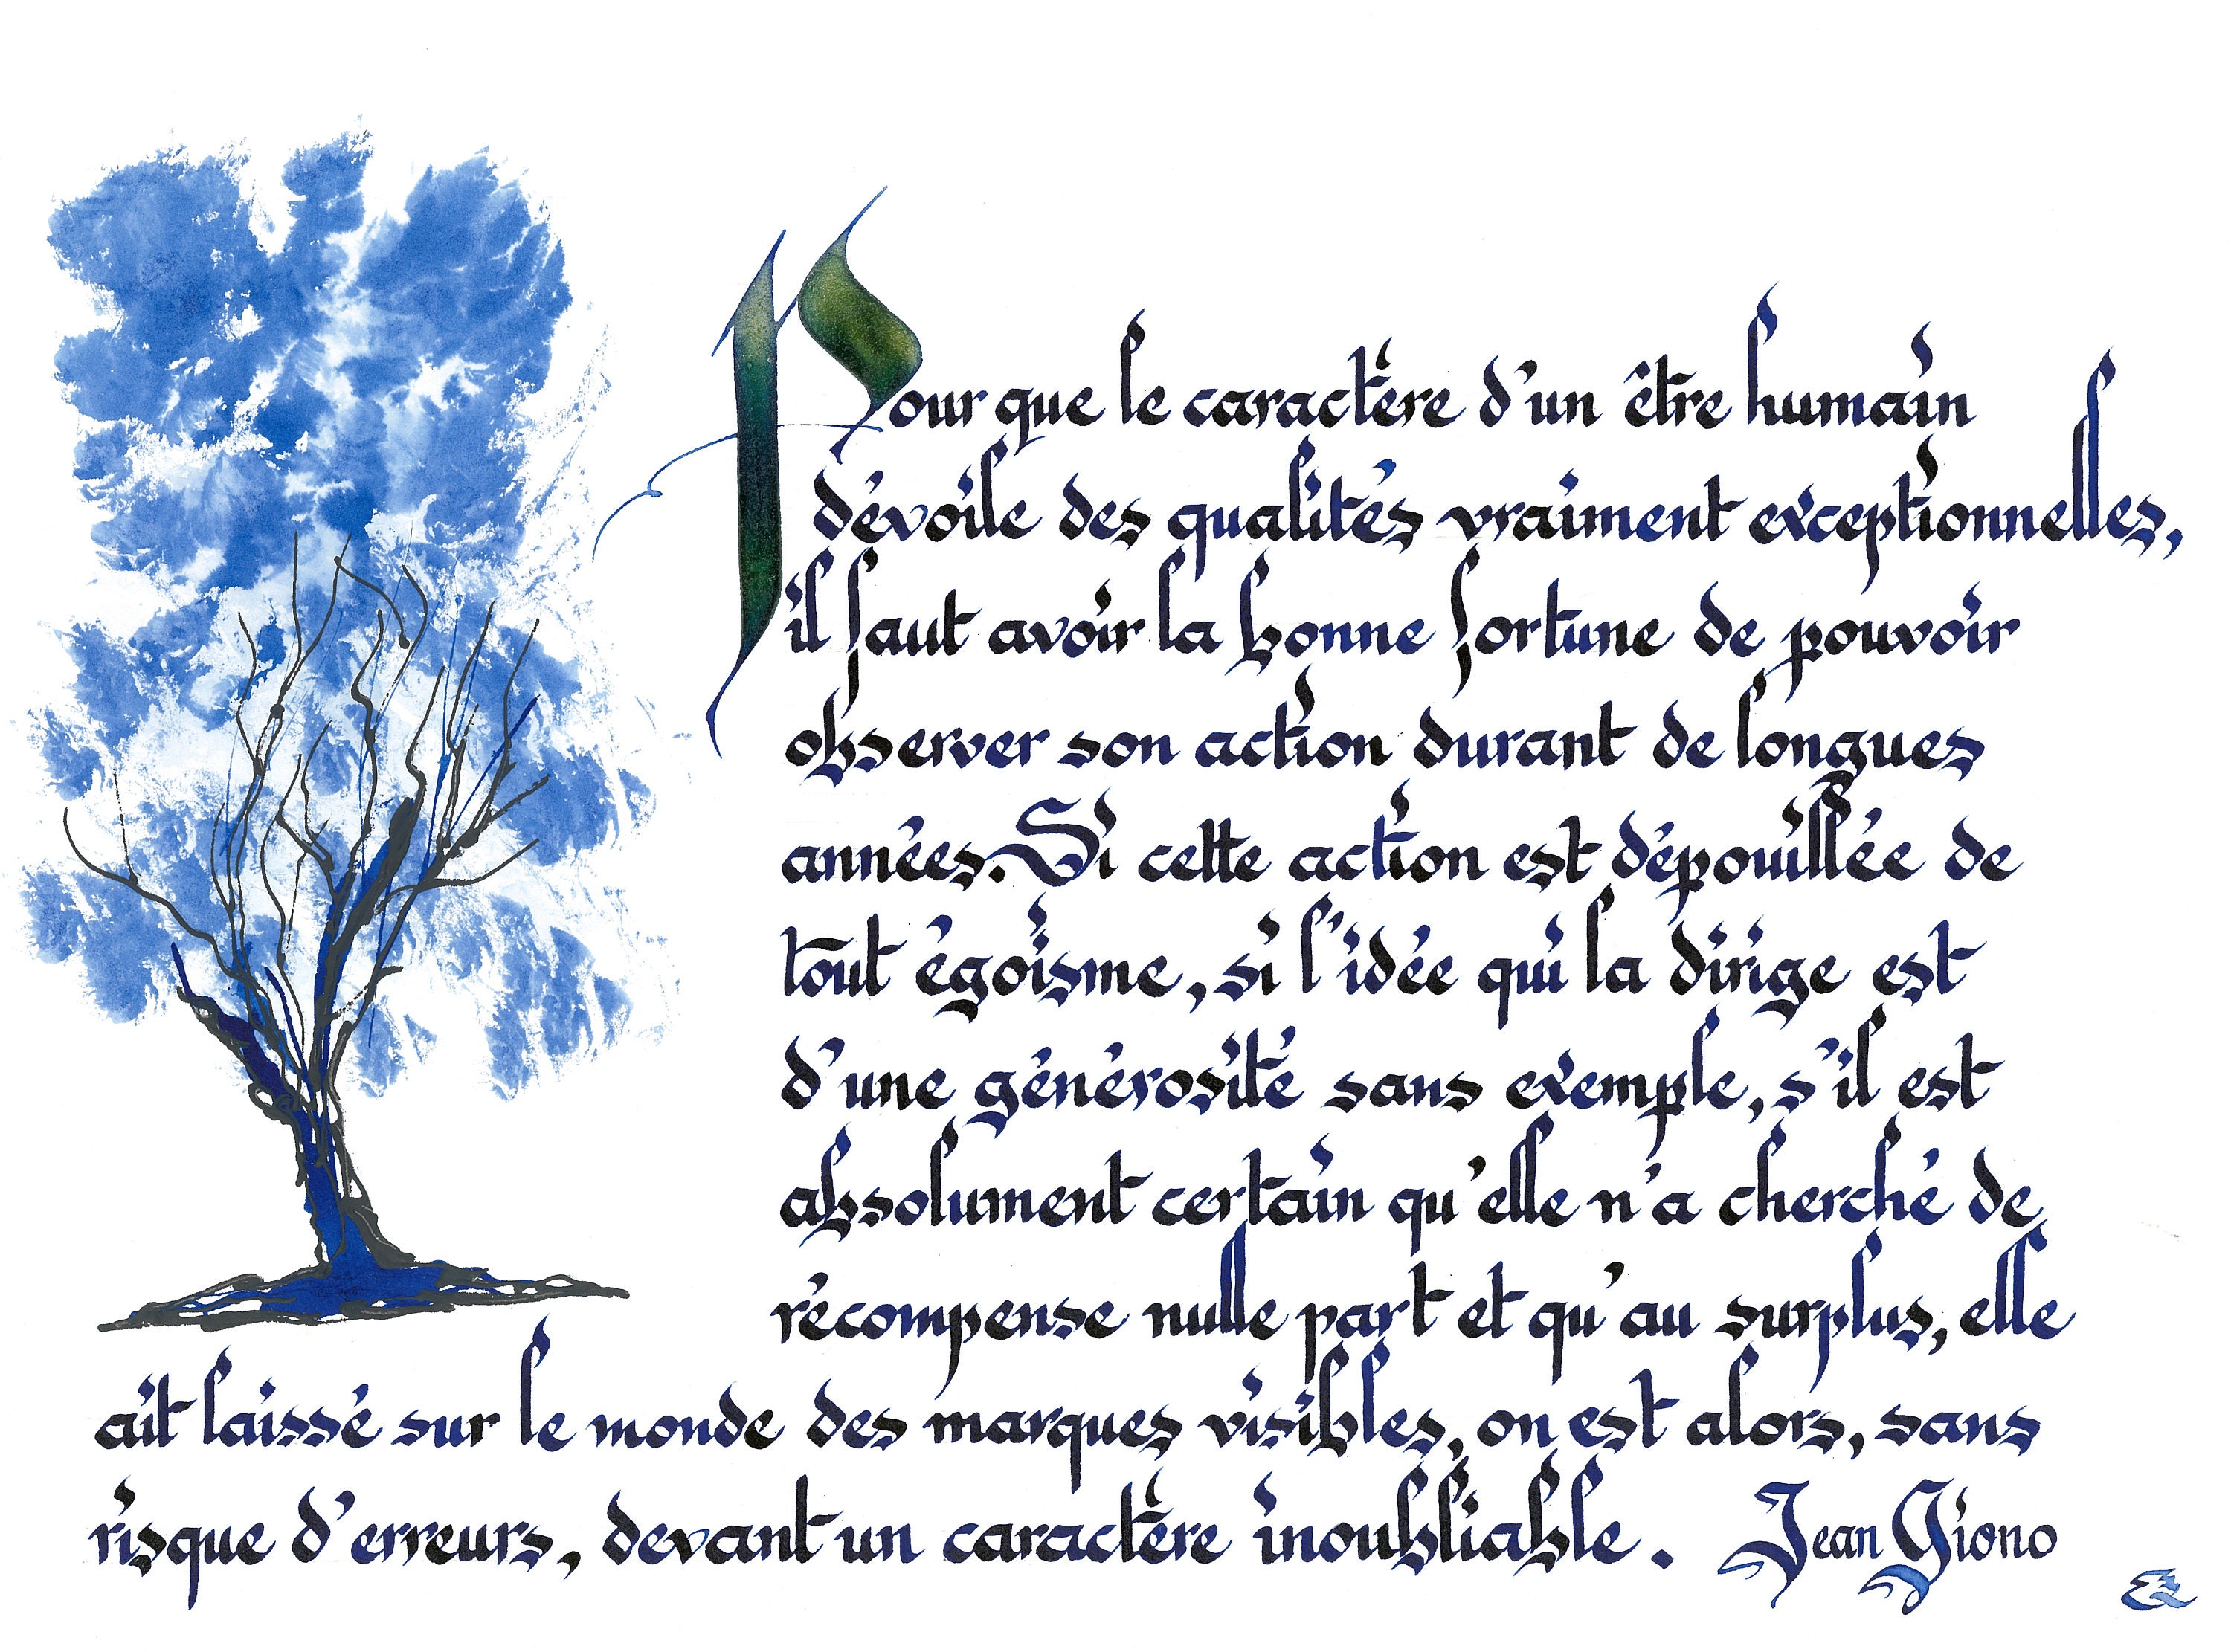 Pour que le caractère d'un être humain
dévoile des qualités vraiment exceptionnelles,
il faut avoir la bonne fortune de pouvoir
observer son action durant de longues
années. Si cette action est dépouillée de
tout égoïsme, si l'idée qui la dirige est
d'une générosité sans exemple, s'il est
absolument certain qu'elle n'a cherché de
récompense nulle part et qu'au surplus, elle
ait laissé sur le monde des marques visibles, on est alors, sans
risque d'erreurs, devant un caractère inoubliable. Jean Giono